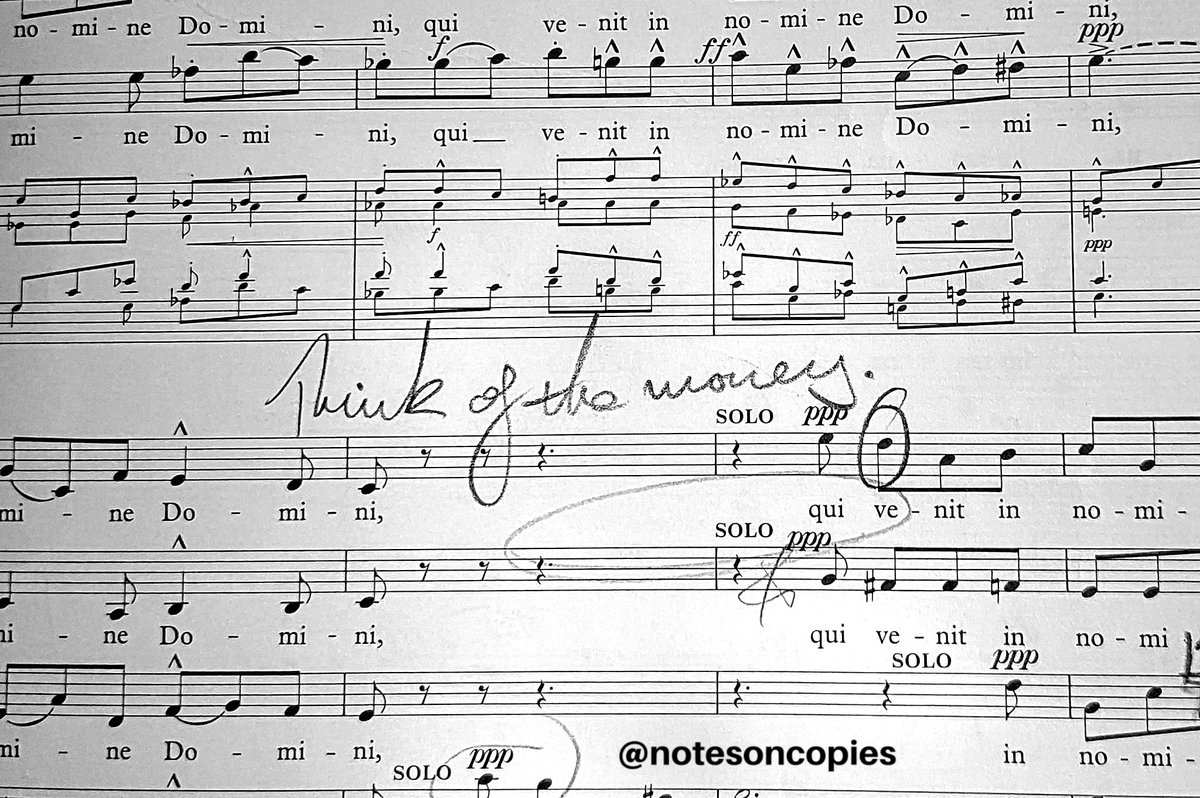 no - mi - ne Do - mi - ni, qui ve - nit in no - mi - ne Do - mi - ni,
f ff ppp
mi - ne Do - mi - ni, qui ve - nit in no - mi - ne Do - mi - ni,
f ff ppp
Think of the money.
SOLO ppp
mi - ne Do - mi - ni, qui ve - nit in no - mi -
SOLO ppp
ni - ne Do - mi - ni, qui ve - nit in no - mi
SOLO ppp
ni - ne Do - mi - ni, in no - mi -
SOLO ppp
@notesoncopies